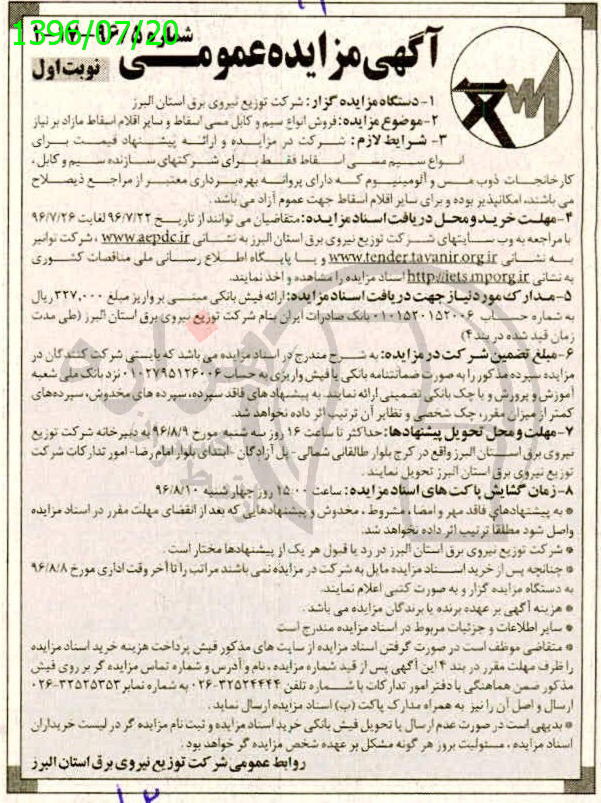 1396/07/20
شماره ۹۶/۵-
آگهی مزایده عمومی
نوبت اول
۱- دستگاه مزایده گزار: شرکت توزیع نیروی برق استان البرز
۲-موضوع مزایده: فروش انواع سیم و کابل مسی اسقاط و سایر اقلام اسقاط مازاد بر نیاز
۳- شرایط لازم: شرکت در مزایده و ارائه پیشنهاد قیمت برای
انواع سیم مسی اسقاط فقط برای شرکتهای سازنده سیم و کابل،
کارخانجات ذوب مس و آلومینیوم که دارای پروانه بهره‌برداری معتبر از مراجع ذیصلاح
می باشند، امکانپذیر بوده و برای سایر اقلام اسقاط جهت عموم آزاد می باشد.
۴-مهلت خرید و محل دریافت اسناد مزایده: متقاضیان می توانند از تاریخ ۹۶/۷/۲۲ لغایت ۹۶/۷/۲۶
با مراجعه به وب سایتهای شرکت توزیع نیروی برق استان البرز به نشانی www.aepdc.ir ، شرکت توانیر
به نشانی www.tender.tavanir.org.ir و یا پایگاه اطلاع رسانی ملی مناقصات کشوری
به نشانی http://iets.mporg.ir اسناد مزایده را مشاهده و اخذ نمایند.
۵-مدارک مورد نیاز جهت دریافت اسناد مزایده: ارائه فیش بانکی مبتنی بر واریز مبلغ ۳۲۷,۰۰۰ ریال
به شماره حساب ۰۱۰۱۵۲۰۱۵۲۰۰۶ بانک صادرات ایران بنام شرکت توزیع نیروی برق استان البرز (طی مدت
زمان قید شده در بند ۴)
۶-مبلغ تضمین شرکت در مزایده: به شرح مندرج در اسناد مزایده می باشد که بایستی شرکت کنندگان در
مزایده سپرده مذکور را به صورت ضمانتنامه بانکی یا فیش واریزی به حساب ۰۱۰۲۷۹۵۱۲۶۰۰۶ نزد بانک ملی شعبه
آموزش و پرورش و یا چک بانکی تضمینی ارائه نمایند. به پیشنهاد های فاقد سپرده، سپرده های مخدوش، سپرده‌های
کمتر از میزان مقرر، چک شخصی و نظایر آن ترتیب اثر داده نخواهد شد.
۷-مهلت و محل تحویل پیشنهادها: حداکثر تا ساعت ۱۶ روز سه شنبه مورخ ۹۶/۸/۹ به دبیرخانه شرکت توزیع
نیروی برق استان البرز واقع در کرج بلوار طالقانی شمالی- پل آزادگان -ابتدای بلوار امام رضا- امور تدارکات شرکت
توزیع نیروی برق استان البرز تحویل نمایند .
۸-زمان گشایش پاکت های اسناد مزایده: ساعت ۱۵:۰۰ روز چهارشنبه ۹۶/۸/۱۰
* به پیشنهادهای فاقد مهر و امضا، مشروط ، مخدوش و پیشنهادهایی که بعد از انقضای مهلت مقرر در اسناد مزایده
واصل شود مطلقا ترتیب اثر داده نخواهد شد.
* شرکت توزیع نیروی برق استان البرز در رد یا قبول هر یک از پیشنهادها مختار است .
* چنانچه پس از خرید اسناد مزایده مایل به شرکت در مزایده نمی باشند مراتب را تا آخر وقت اداری مورخ ۹۶/۸/۸
به دستگاه مزایده گزار و به صورت کتبی اعلام نمایند.
* هزینه آگهی بر عهده برنده یا برندگان مزایده می باشد .
* سایر اطلاعات و جزئیات مربوط در اسناد مزایده مندرج است
* متقاضی موظف است در صورت گرفتن اسناد مزایده از سایت های مذکور فیش پرداخت هزینه خرید اسناد مزایده
را ظرف مهلت مقرر در بند ۴ این آگهی پس از قید شماره مزایده ، نام و آدرس و شماره تماس مزایده گر بر روی فیش
مذکور ضمن هماهنگی با دفتر امور تدارکات با شماره تلفن ۳۲۵۲۴۴۴۴-۰۲۶ به شماره نمابر ۳۲۵۲۵۳۵۳-۰۲۶
ارسال و اصل آن را نیز به همراه مدارک پاکت (ب) اسناد مزایده ارسال نماید .
* بدیهی است در صورت عدم ارسال یا تحویل فیش بانکی خرید اسناد مزایده و ثبت نام مزایده گر در لیست خریداران
اسناد مزایده ، مسئولیت بروز هر گونه مشکل بر عهده شخص مزایده گر خواهد بود .
روابط عمومی شرکت توزیع نیروی برق استان البرز